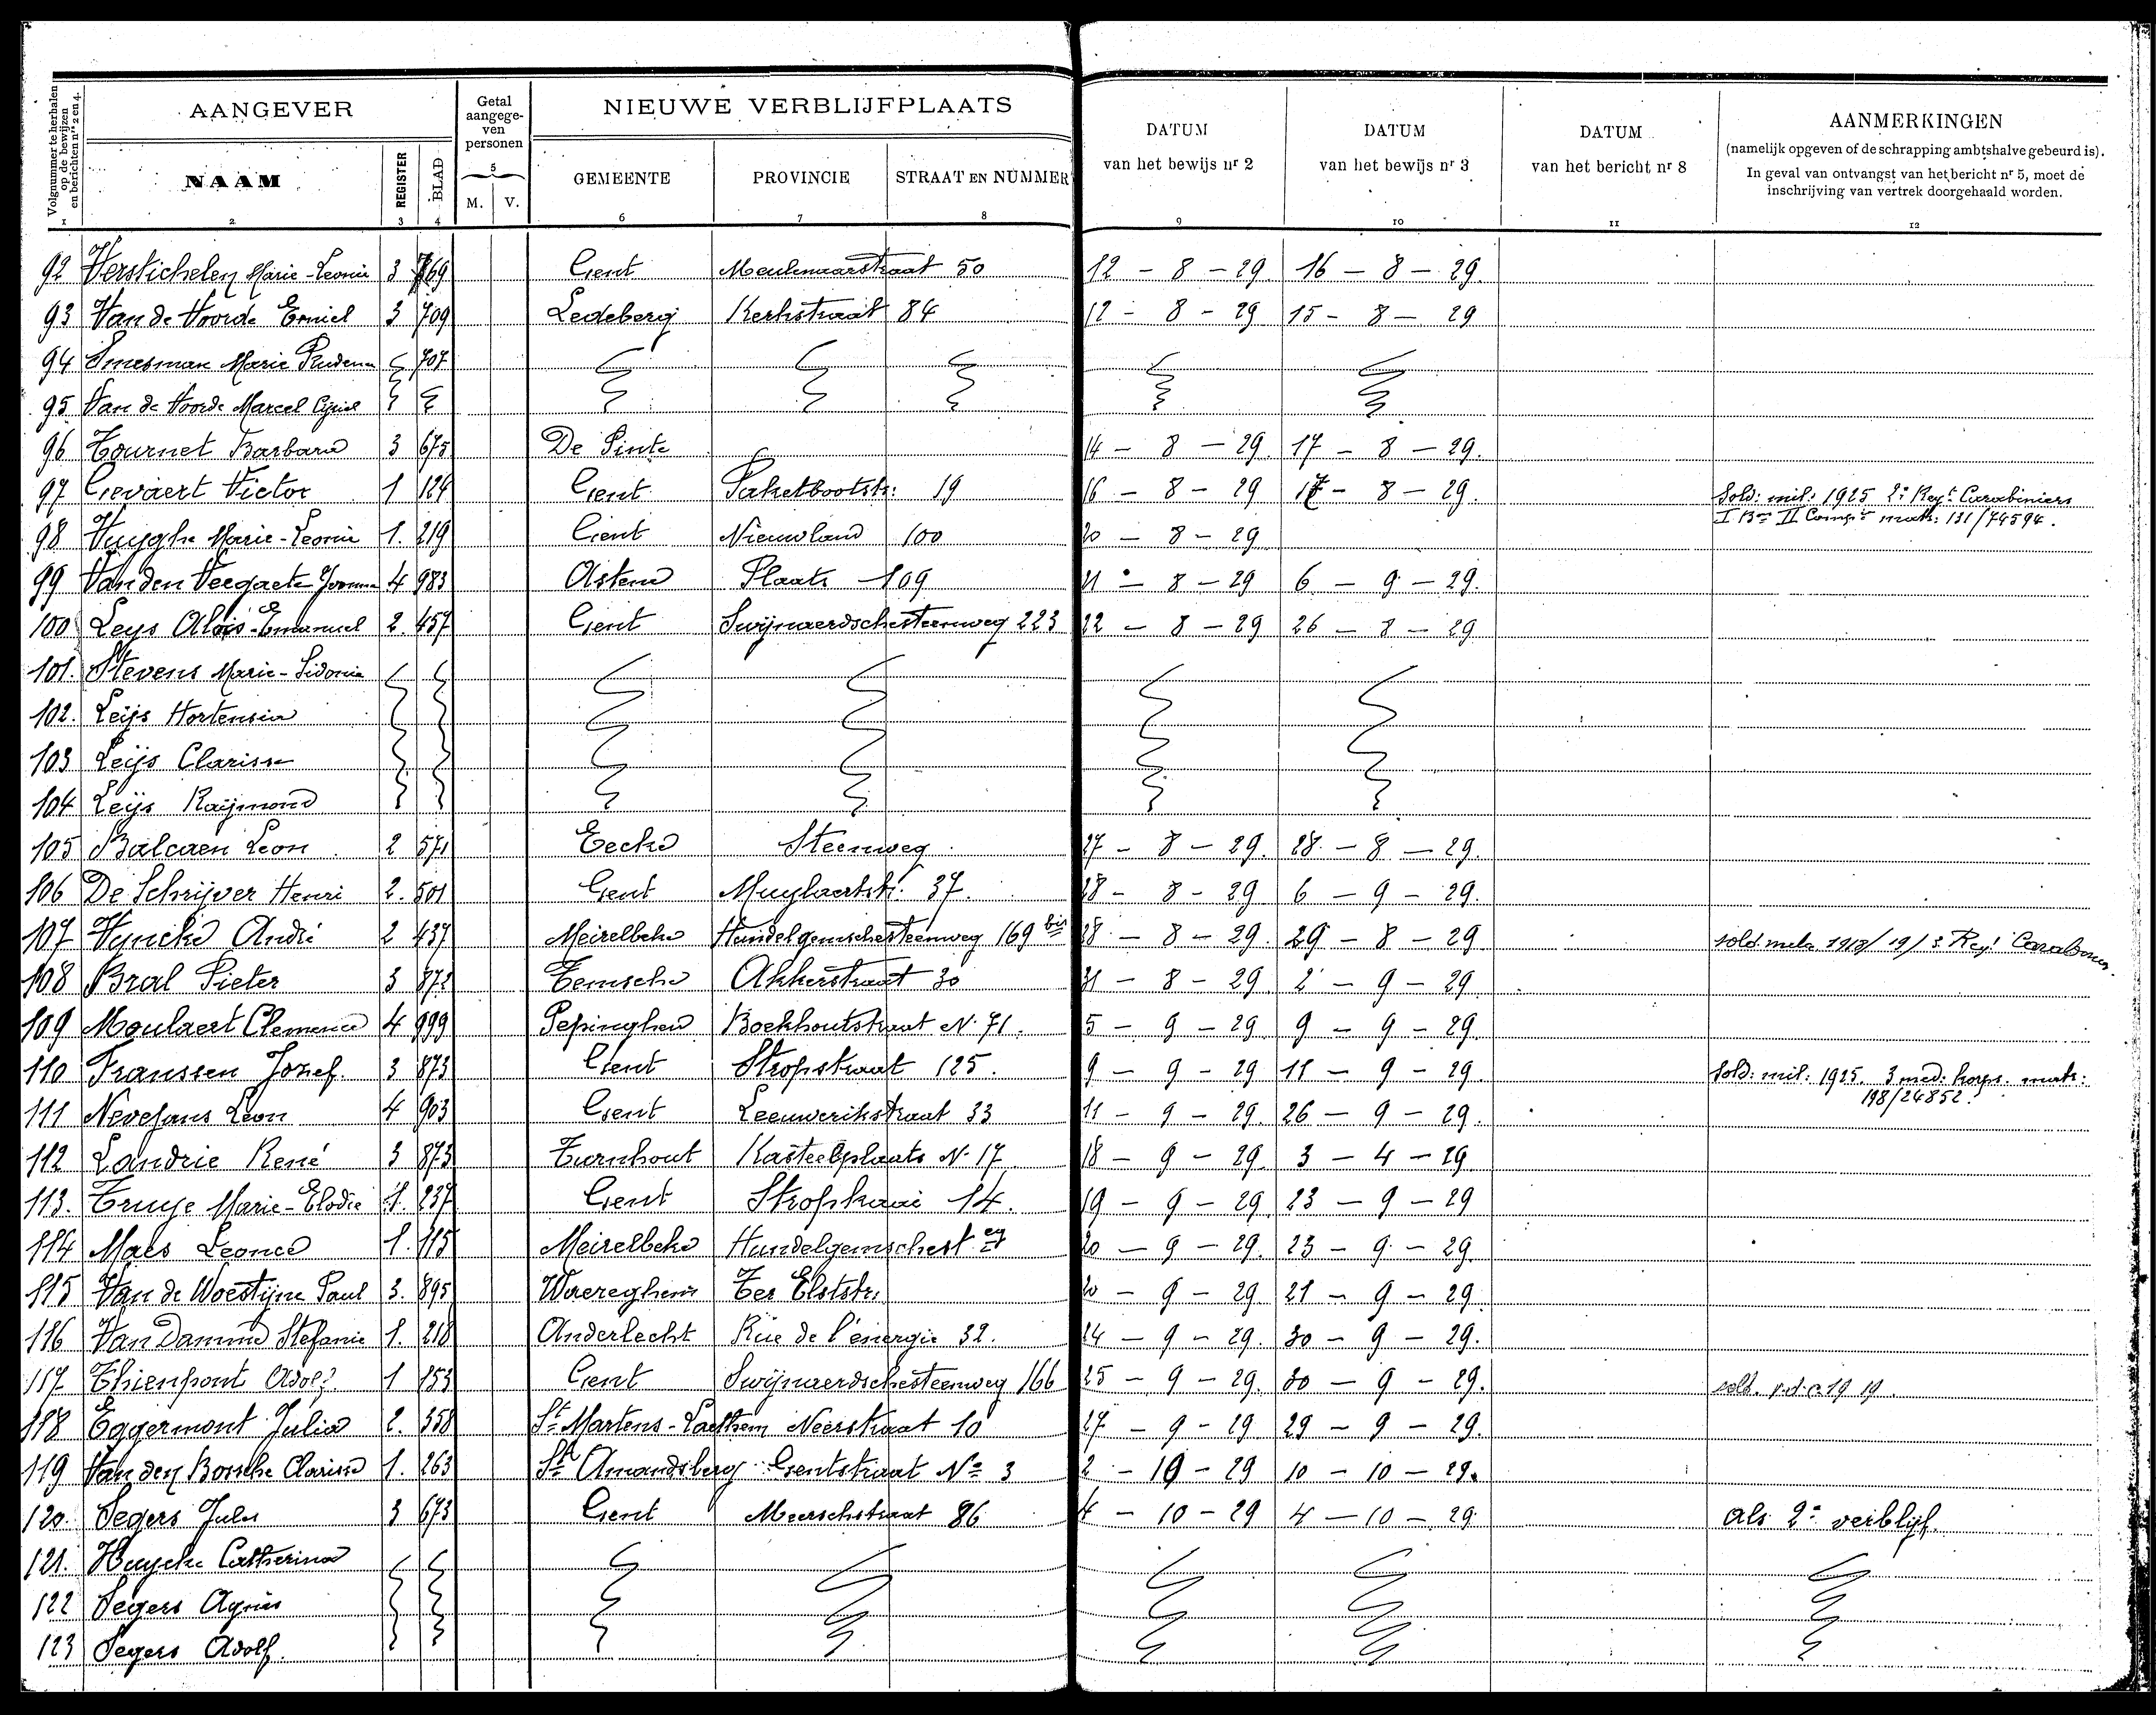 Volgnummer te herhalen op de bewijzen en berichten nrs 2 en 4.
AANGEVER
Getal aangege-ven personen
NIEUWE VERBLIJFPLAATS
DATUM van het bewijs nr 2
DATUM van het bewijs nr 3
DATUM van het bericht nr 8
AANMERKINGEN
(namelijk opgeven of de schrapping ambtshalve gebeurd is).
In geval van ontvangst van het bericht nr 5, moet de
inschrijving van vertrek doorgehaald worden.
NAAM REGISTER BLAD M. V. GEMEENTE PROVINCIE STRAAT EN NUMMER
1 2 3 4 5 6 7 8 9 10 11 12
92 Verstichelen Marie-Leonie 3 769 Gent Meulenaarstraat 50 12 - 8 - 29 16 - 8 - 29.
93 Van de Voorde Emiel 3 709 Ledeberg Kerkstraat 84 12 - 8 - 29 15 - 8 - 29
94 Smesman Marie 707
95 Van de Voorde Marcel Cyriel
96 Tournet Barbara 3 675 De Pinte 14 - 8 - 29. 17 - 8 - 29.
97 Gevaert Victor 1 124 Gent Paketbootstr: 19 16 - 8 - 29 17 - 8 - 29. Sold: mil: 1925 2e Regt Carabiniers
I Bon II Compie matr: 131/74594.
98 Huyghe Marie-Leonie 1. 219 Gent Nieuwland 100 20 - 8 - 29
99 Van den Veegaete Yvonne 4 983 Astene Plaats 109 21 - 8 - 29 6 - 9 - 29.
100 Leys Aloïs-Emanuel 2. 457 Gent Swijnaerdschesteenweg 223 22 - 8 - 29 26 - 8 - 29
101. Stevens Marie-Sidonie
102. Leijs Hortensia
103 Leijs Clarisse
104 Leijs Raijmond
105 Balcaen Leon 2 571 Eecke Steenweg 27 - 8 - 29. 28 - 8 - 29.
106 De Schrijver Henri 2. 501 Gent Muylaertstr. 37. 28 - 8 - 29 6 - 9 - 29.
107 Vyncke André 2 437 Meirelbeke Hundelgemschesteenweg 169 bis 28 - 8 - 29. 29 - 8 - 29 sold. 19/3 Regt
108 Bral Pieter 3 872 Temsche Akkerstraat 30 31 - 8 - 29. 2 - 9 - 29
109 Moulaert Clemence 4 999 Pepinghen Boekhoutstraat N. 71. 5 - 9 - 29 9 - 9 - 29.
110 Franssen Jozef. 3 873 Gent Stropstraat 125. 9 - 9 - 29 11 - 9 - 29. Sold: mil: 1925. 3 med: korps. matr:
198/24852.
111 Nevejans Leon 4 903 Gent Leeuwerikstraat 33 11 - 9 - 29. 26 - 9 - 29.
112 Landrie René 3 873 Turnhout Kasteelplaats N. 17 18 - 9 - 29. 3 - 4 - 29
113. Truye Marie-Elodie 1. 237 Gent Stropkaai 14. 19 - 9 - 29. 23 - 9 - 29
114 Maes Leonce 1. 115 Meirelbeke Hundelgemschest eg 20 - 9 - 29. 23 - 9 - 29.
115 Van de Woestijne Paul 3. 895 Waereghem Ter Elststr. 20 - 9 - 29 21 - 9 - 29.
116 Van Damme Stefanie 1. 218 Anderlecht Rue de l'énergie 32. 24 - 9 - 29. 30 - 9 - 29.
117 Thienpont Adolf 1 153 Gent Swijnaerdschesteenweg 166 25 - 9 - 29. 30 - 9 - 29. sold. 1919.
118 Eggermont Julia 2. 358 St Martens-Laethem Neerstraat 10 27 - 9 - 29 29 - 9 - 29.
119 Van den Bossche Clarisse 1. 263 St Amandsberg Gentstraat No 3 2 - 10 - 29 10 - 10 - 29.
120. Segers Jules 3 673 Gent Meerschstraat 86 4 - 10 - 29 4 - 10 - 29 als 2e verblijf.
121. Huycke Catherina
122 Segers Agnes
123 Segers Adolf.